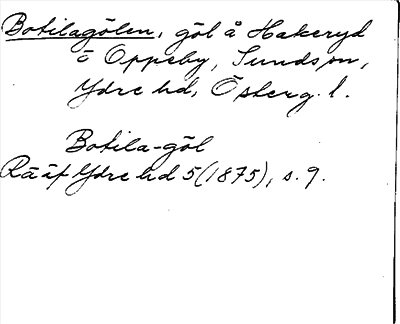 Botilagölen, göl å Hakeryd
ö Oppeby, Sunds sn,
Ydre hd, Österg. l.
Botila-göl
Rääf Ydre hd 5 (1875), s. 9.